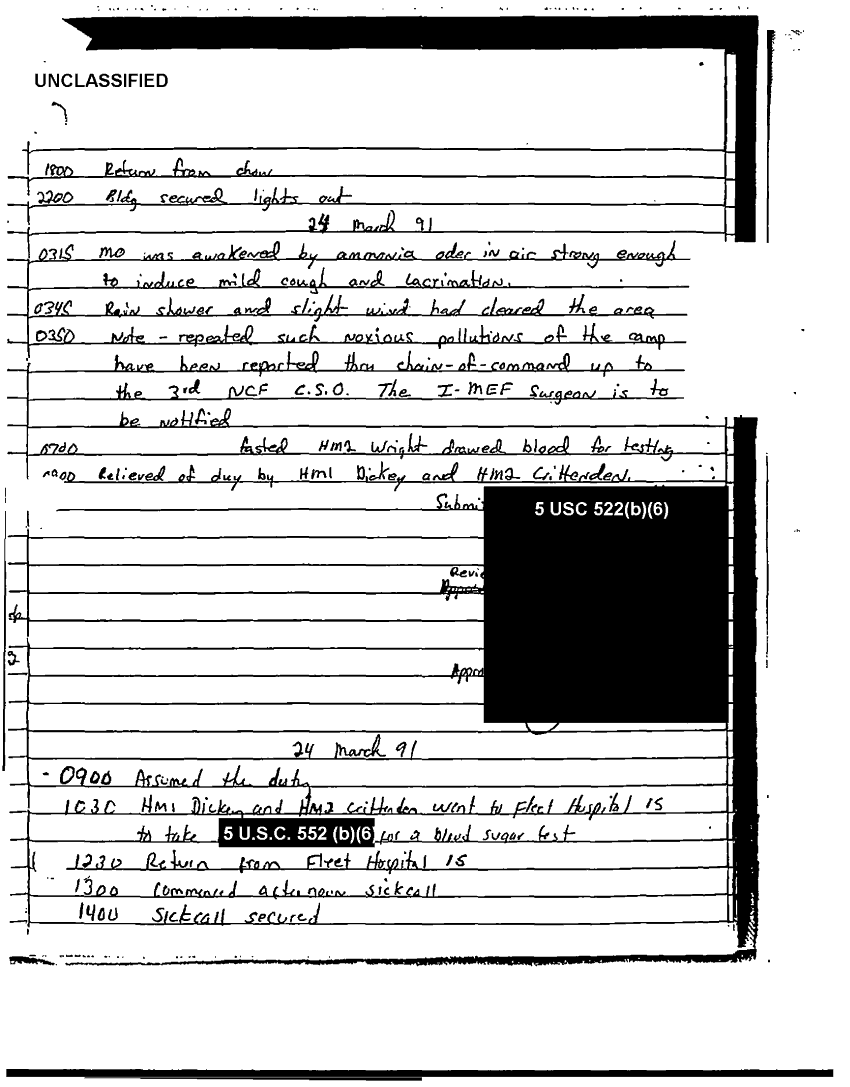 UNCLASSIFIED
1800 Return from chow
2200 Bldg secured lights out
24 March 91
0315 MO was awakened by ammonia oder in air strong enough
to induce mild cough and lacrimation.
0345 Rain shower and slight wind had cleared the area
0350 Note - repeated such noxious pollutions of the camp
have been reported thru chain-of-command up to
the 3rd NCF C.S.O. The I-MEF Surgeon is to
be notified
0700 fasted HM2 Wright drawed blood for testing
Relieved of duy by HM1 Dickey and HM2 Crittenden.
Submi
5 USC 522(b)(6)
Revie
Appro
24 March 91
- 0900 Assumed the duty
1030 HM1 Dickey and HM2 Crittenden went to Fleet Hospital 15
to take 5 U.S.C. 552 (b)(6) for a blood sugar test
1230 Return from Fleet Hospital 15
1300 Commenced afternoon sickcall
1400 Sickcall secured